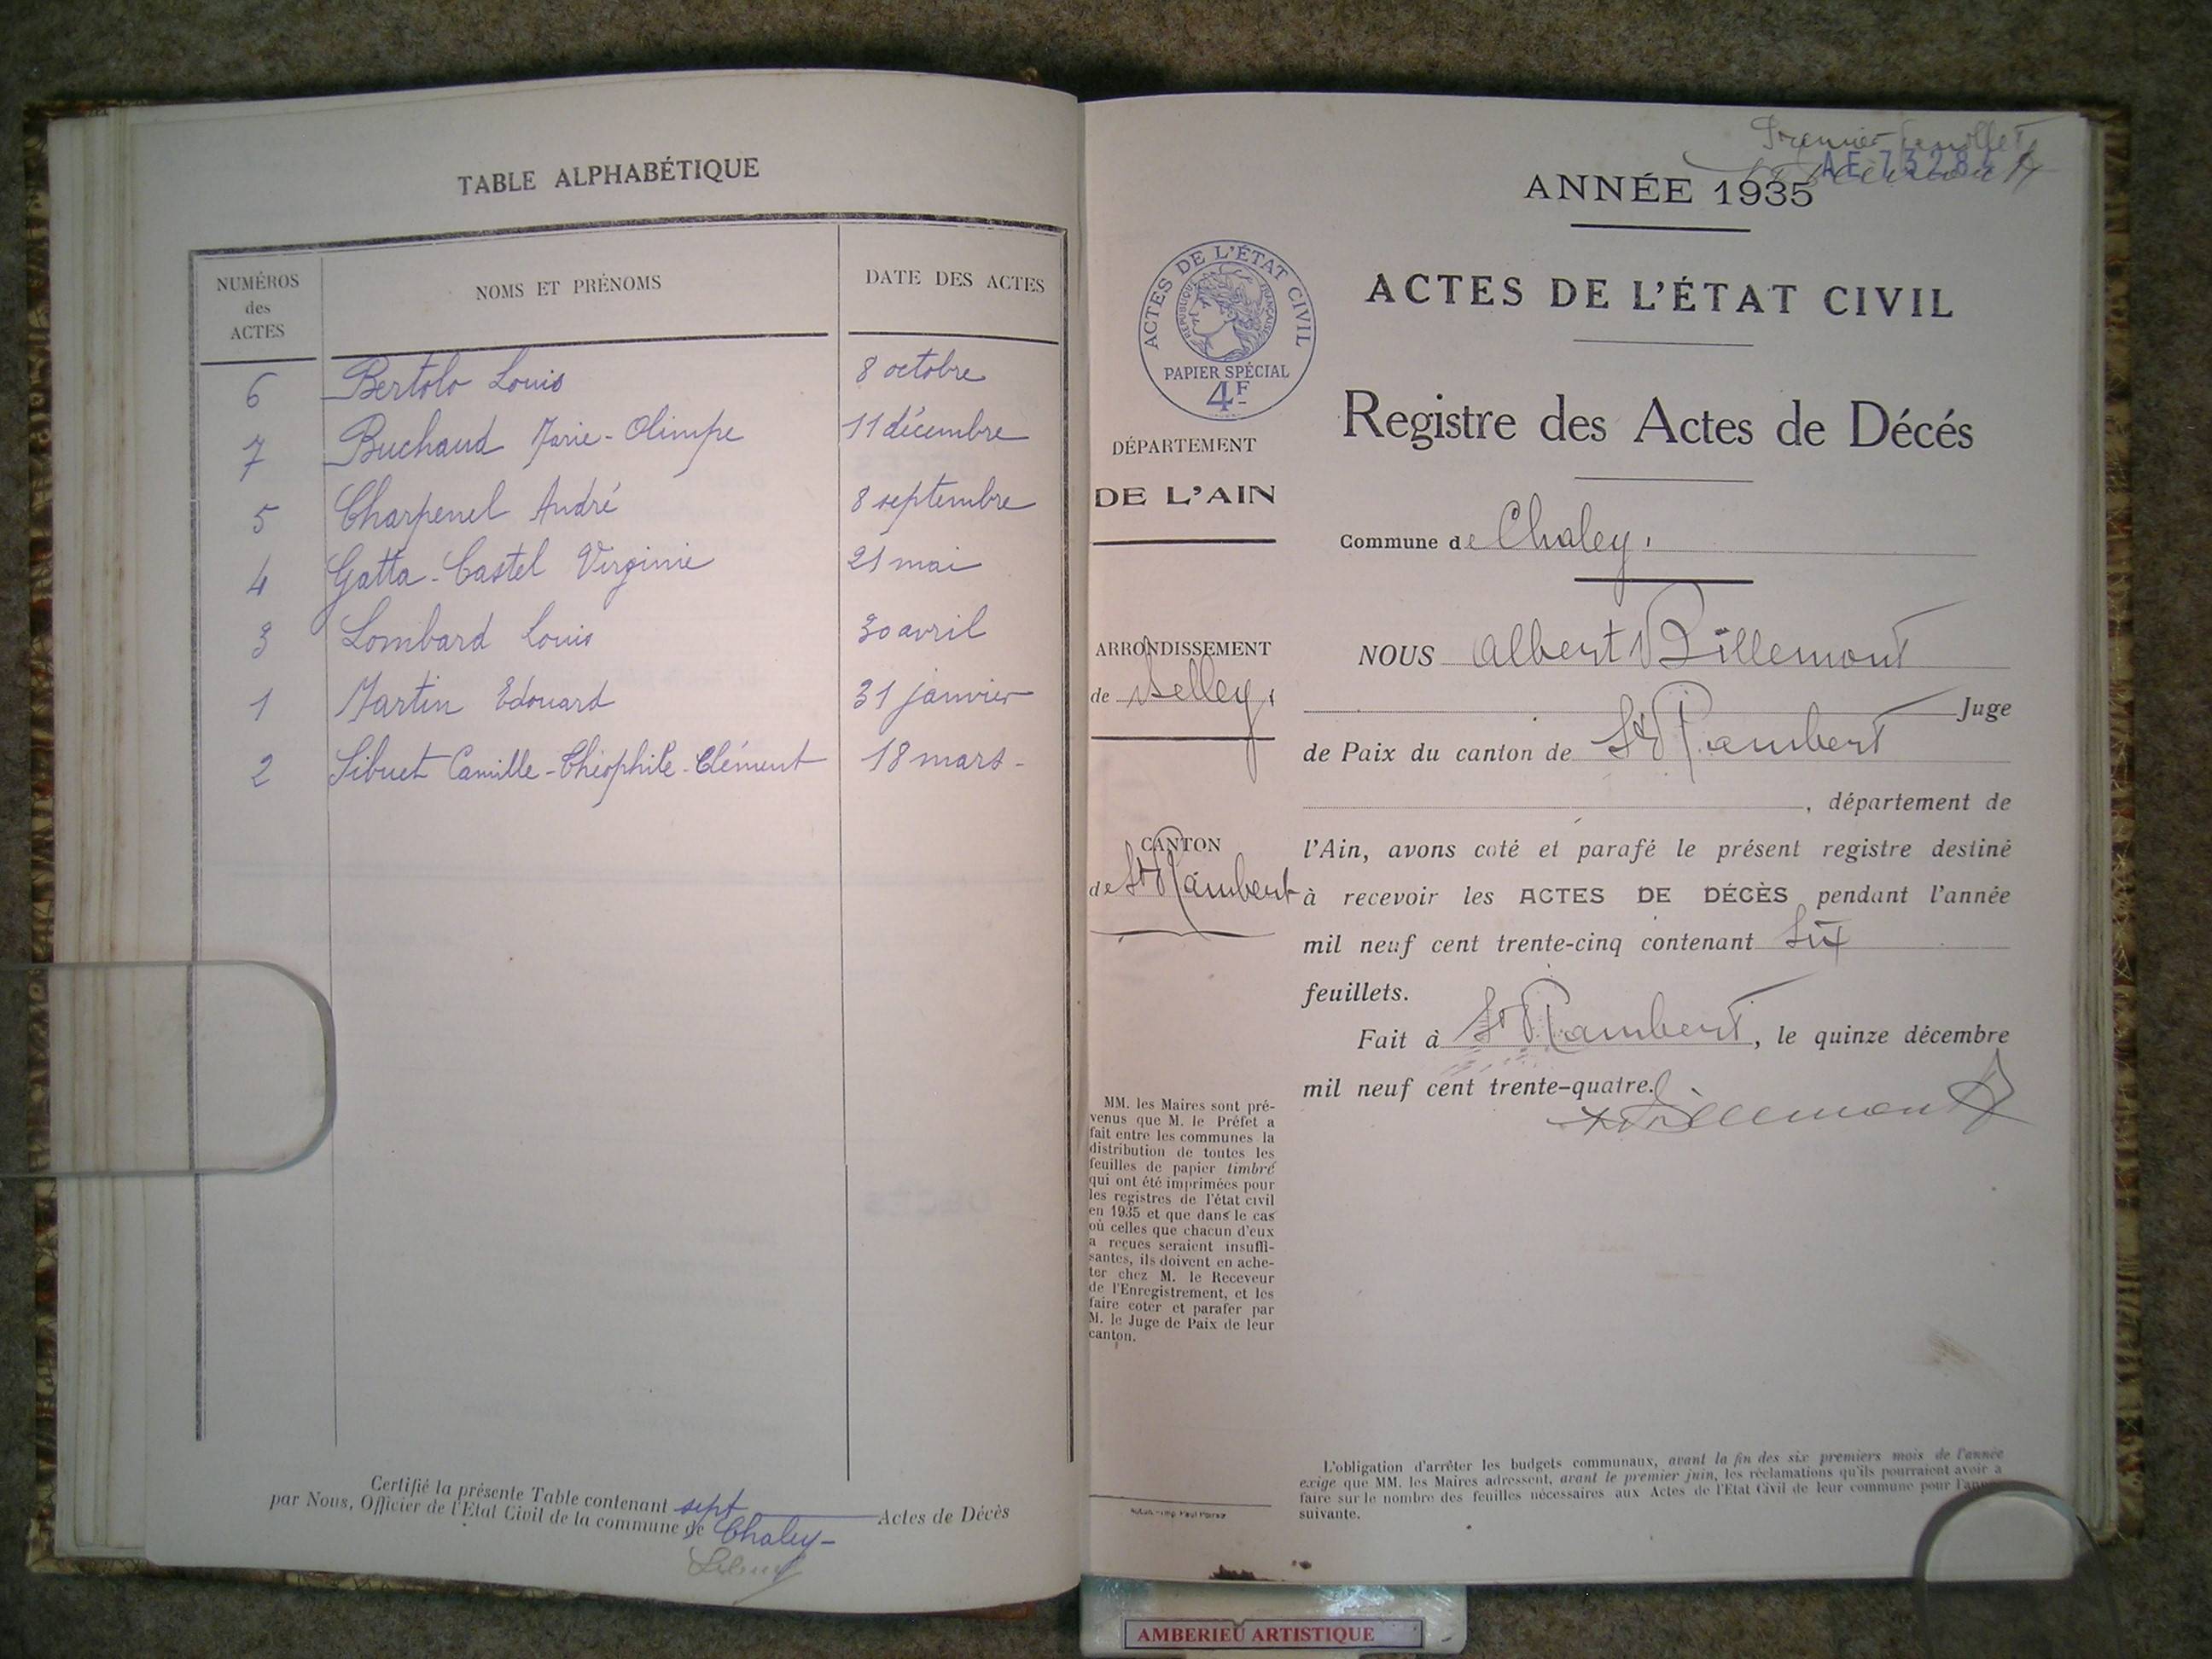 TABLE ALPHABÉTIQUE
NUMÉROS des ACTES
NOMS ET PRÉNOMS
DATE DES ACTES
6 Bertolo Louis 8 octobre
7 Buchaud Marie-Olimpe 11 décembre
5 Charpenel André 8 septembre
4 Gatta-Castel Virginie 21 mai
3 Lombard Louis 30 avril
1 Martin Edouard 31 janvier
2 Sibuet Camille-Théophile-Clément 18 mars -
Certifié la présente Table contenant sept Actes de Décès
par Nous, Officier de l'Etat Civil de la commune de Chaley-
Premier feuillet
AE 7328
ANNÉE 1935
ACTES DE L'ÉTAT CIVIL
RÉPUBLIQUE FRANÇAISE
PAPIER SPÉCIAL
4F
ACTES DE L'ÉTAT CIVIL
Registre des Actes de Décés
DÉPARTEMENT
DE L'AIN
Commune de Chaley.
ARRONDISSEMENT
de Belley.
CANTON
de St Rambert
NOUS Albert Billemont
Juge
de Paix du canton de St Rambert
, département de
l'Ain, avons coté et parafé le présent registre destiné
à recevoir les ACTES DE DÉCÈS pendant l'année
mil neuf cent trente-cinq contenant Six
feuillets.
Fait à St Rambert, le quinze décembre
mil neuf cent trente-quatre.
Billemont
MM. les Maires sont pré-
venus que M. le Préfet a
fait entre les communes la
distribution de toutes les
feuilles de papier timbré
qui ont été imprimées pour
les registres de l'état civil
en 1935 et que dans le cas
où celles que chacun d'eux
a reçues seraient insuffi-
santes, ils doivent en ache-
ter chez M. le Receveur
de l'Enregistrement, et les
faire coter et parafer par
M. le Juge de Paix de leur
canton.
L'obligation d'arrêter les budgets communaux, avant la fin des six premiers mois de l'année
exige que MM. les Maires adressent, avant le premier juin, les réclamations qu'ils pourraient avoir a
faire sur le nombre des feuilles nécessaires aux Actes de l'Etat Civil de leur commune pour l'année
suivante.
AMBERIEU ARTISTIQUE